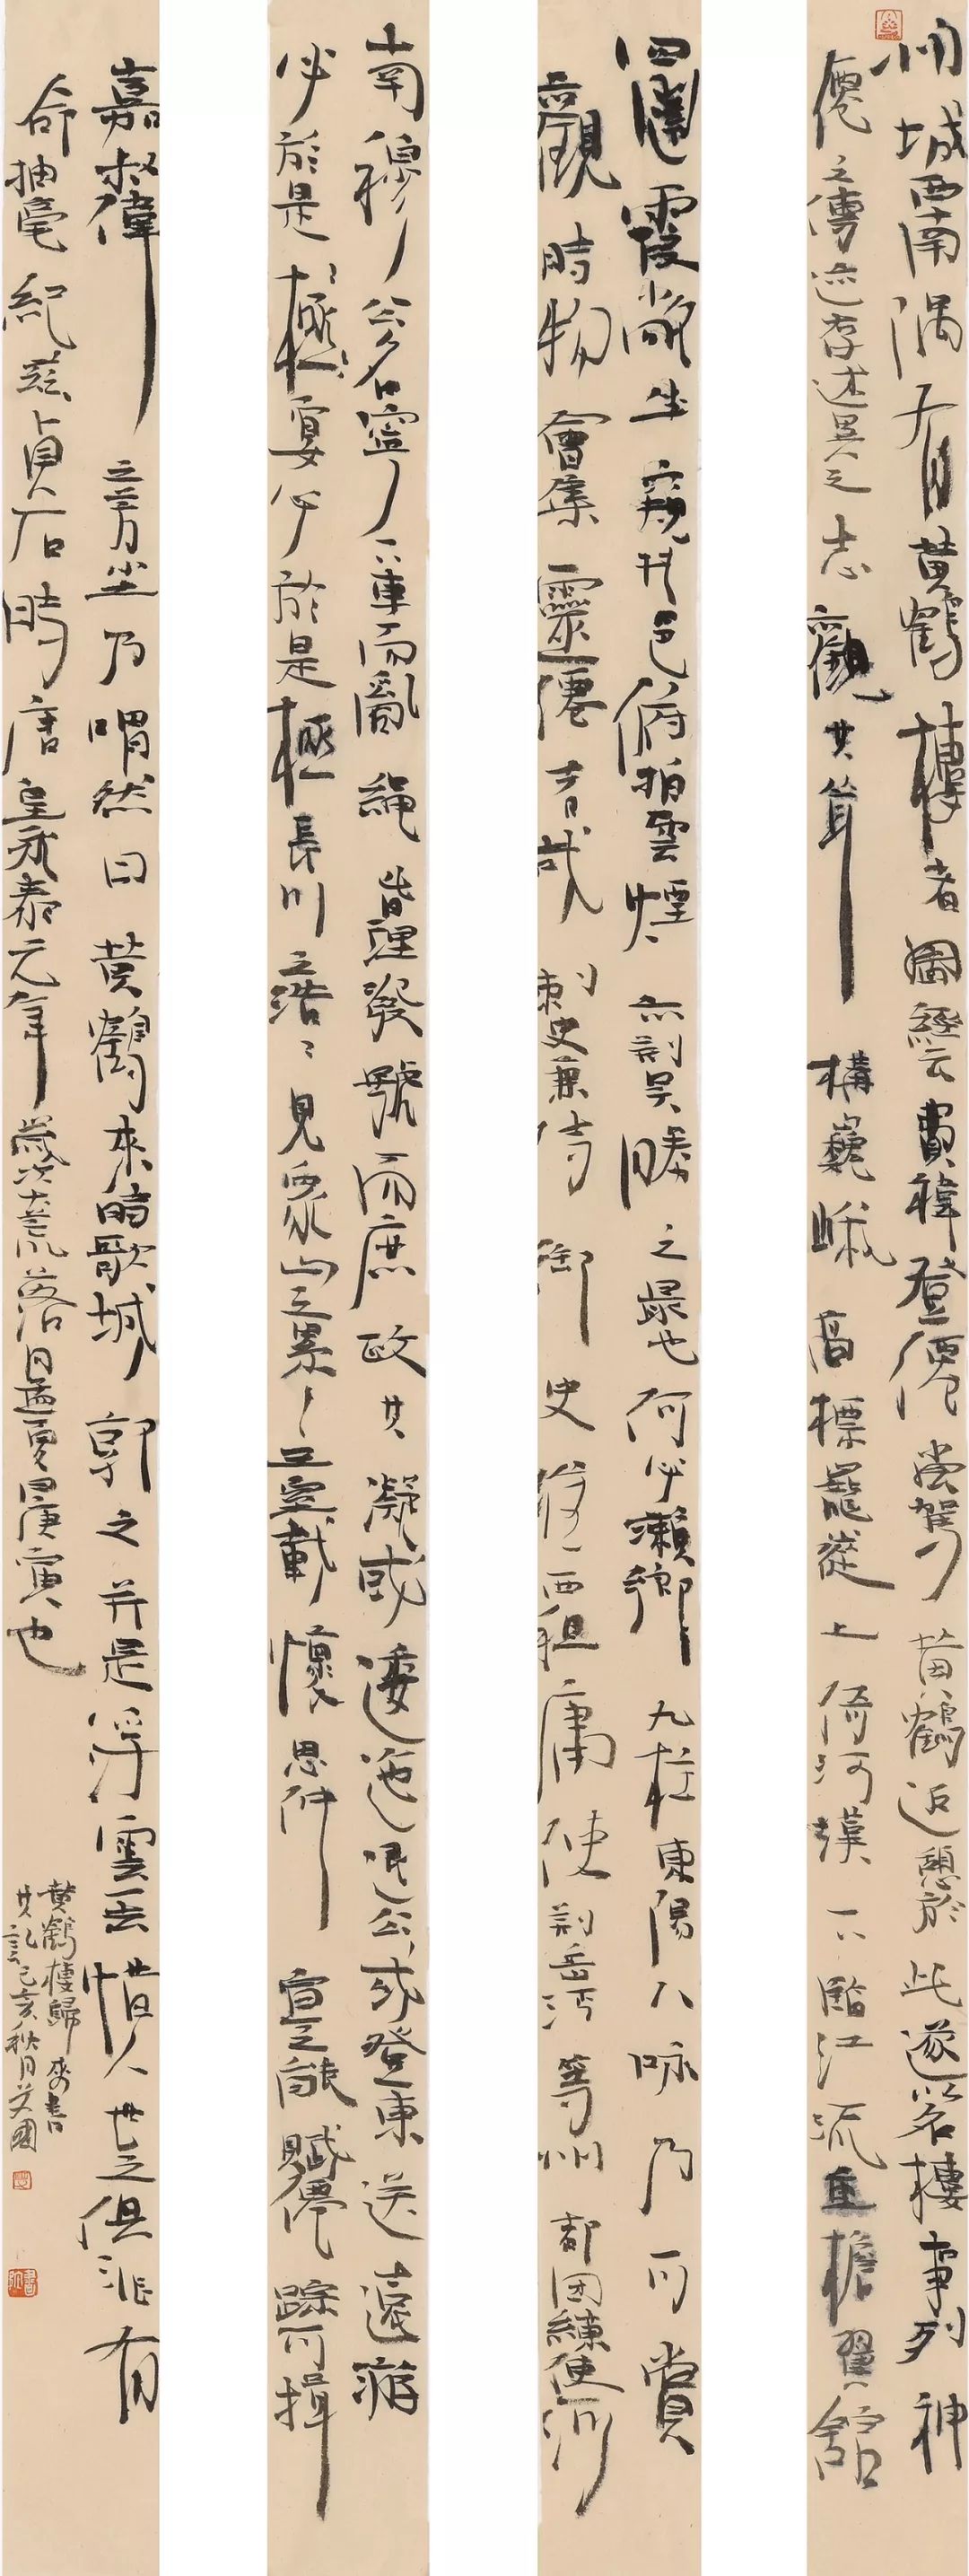 州城西南隅有黄鶴樓者圖經云費禕登僊嘗駕黄鶴返憩於此遂以名樓事列神
僊之傳迹存述異之志觀其聳構巍峨高標巃嵸上倚河漢下臨江流重檐翼舘
四闥霞敞坐窺井邑俯拍雲煙亦荆吴勝之最也何必瀨鄉九柱東陽八咏乃可賞
觀時物會集靈僊者哉刺史兼侍御史淮西租庸使荆岳沔等州都團練使河
南穆公名寧下車而亂繩皆理發號而庶政其凝或逶迤退公或登車送遠游
必於是極宴必於是極長川之浩浩見眾山之累累王室載懷思仲宣之能賦僊蹤可揖
嘉叔偉之芳尘乃喟然曰黄鶴來時歌城郭之并是浮雲一去惜人世之俱非有
命抽毫紀兹貞石時唐皇永泰元年歲次大荒落月孟夏日庚寅也
黄鶴樓歸來書
其記己亥秋月艾國